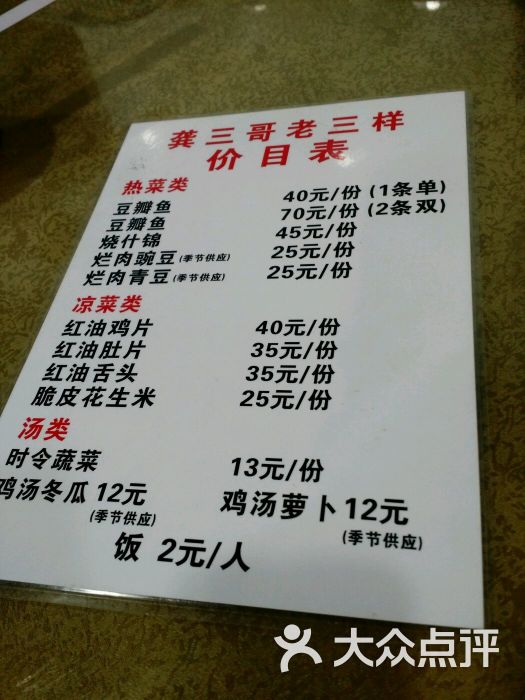 龚三哥老三样
价目表
热菜类
豆瓣鱼 40元/份 (1条单)
豆瓣鱼 70元/份 (2条双)
烧什锦 45元/份
烂肉豌豆(季节供应) 25元/份
烂肉青豆(季节供应) 25元/份
凉菜类
红油鸡片 40元/份
红油肚片 35元/份
红油舌头 35元/份
脆皮花生米 25元/份
汤类
时令蔬菜 13元/份
鸡汤冬瓜 12元 鸡汤萝卜 12元
(季节供应) (季节供应)
饭 2元/人
大众点评